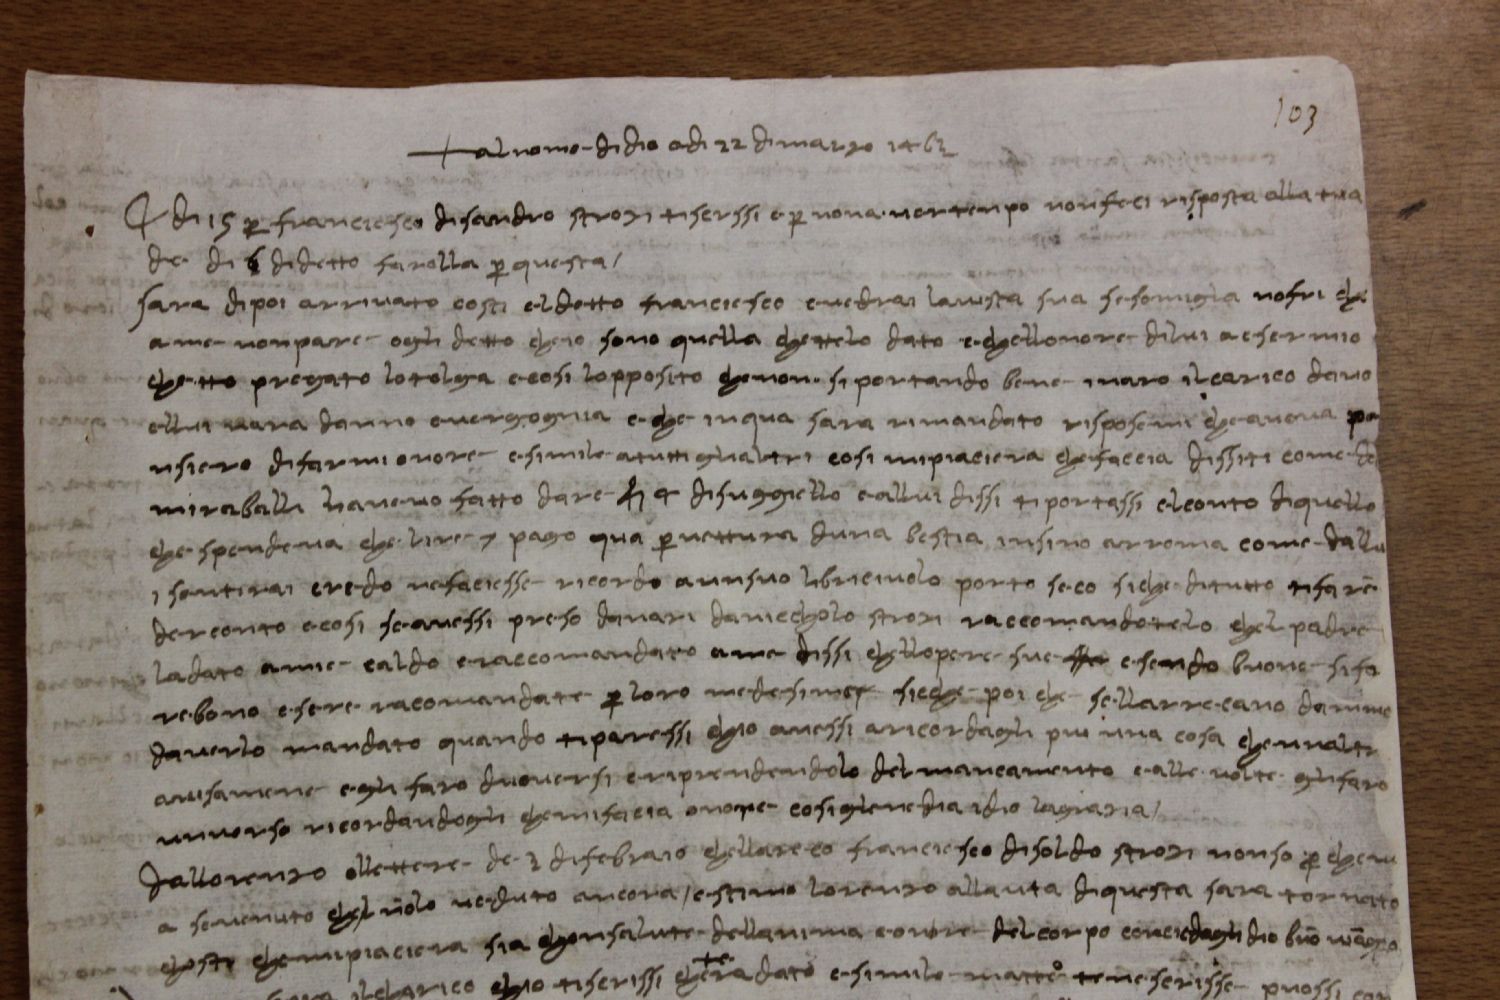 103
+ al nome di dio adi 22 di marzo 1462
Adi 15 per franciesco di sandro strozi ti scrissi e per nonn aver tenpo non feci risposta alla tua
de di 6 di detto farolla per questa /
Sara dipoi arrivato costi el detto franciesco e vedrai la vista sua se somiglia nofri che
a me non pare ogli detto che io sono quella che ttelo dato e chellonore di lui a esermio
che tto pregato lo tolga e cosi lopposito che non si portando bene inaro il carico davo
ellui nara danno e vergognia e che in qua sara rimandato risposemi che aveva pe
nsiero di farmi onore e simile a tutti gli altri cosi mi piaciera che faccia dissiti come de
miraballi navevo fatto dare f 4 di suggiello e allui dissi ti portassi el conto di quello
che spendeva che lire 7 pago qua per vettura duna bestia insino arroma come dallu
i sentirai credo ne faciesse ricordo a un suo libriciuolo porto seco siche di tutto ti fare
der conto e cosi se avessi preso danari da niccholo strozi raccomandotelo chel padre
la dato a me caldo e raccomandato a me dissi chellopere sue esendo buone si fa
rebono esere racomandate per loro medesime siche poi che sellarrecano damme
daverlo mandato quando ti paressi chio avessi a ricordagli piu una cosa che unaltr
avisamene e gli faro duoversi e riprendendolo del mancamento e alle volte gli faro
un verso ricordandogli che mi facia onore cosi gliene dia idio la grazia /
Da llorenzo o llettere de 2 di febraio chellareco franciesco di soldo strozi non so per che vi
a se venuto chel nolo veduto ancora / e stimo lorenzo alla uta di questa sara tornato
chosti che mi piaciera sia chon salute dellanima e onore del corpo conciedagli dio buon viaggio
il charico chio ti scrissi chettera dato e simile matteo tene scrisse puossi